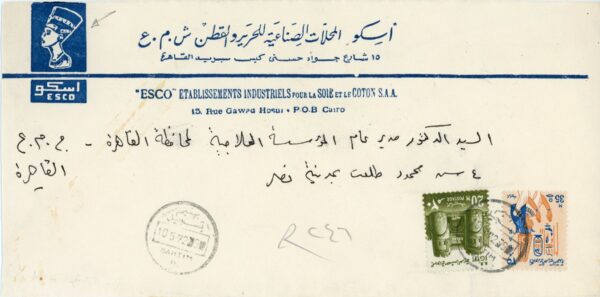 اسكو المحلات الصناعية للحرير والقطن ش.م.ع
١٥ شارع جواد حسني كيس بريد القاهرة
اسكو
ESCO
"ESCO" ETABLISSEMENTS INDUSTRIELS POUR LA SOIE ET LE COTON S.A.A.
15. Rue Gawad Hosni - P.O.B Cairo
السيد الدكتور مدير عام المؤسسة العلاجية لمحافظة القاهرة - ج.م.ع
٤ ش محمود طلعت بمدينة نصر القاهرة
20 M
POSTAGE
EGYPT
35
10-5-72
R ٢٤٦